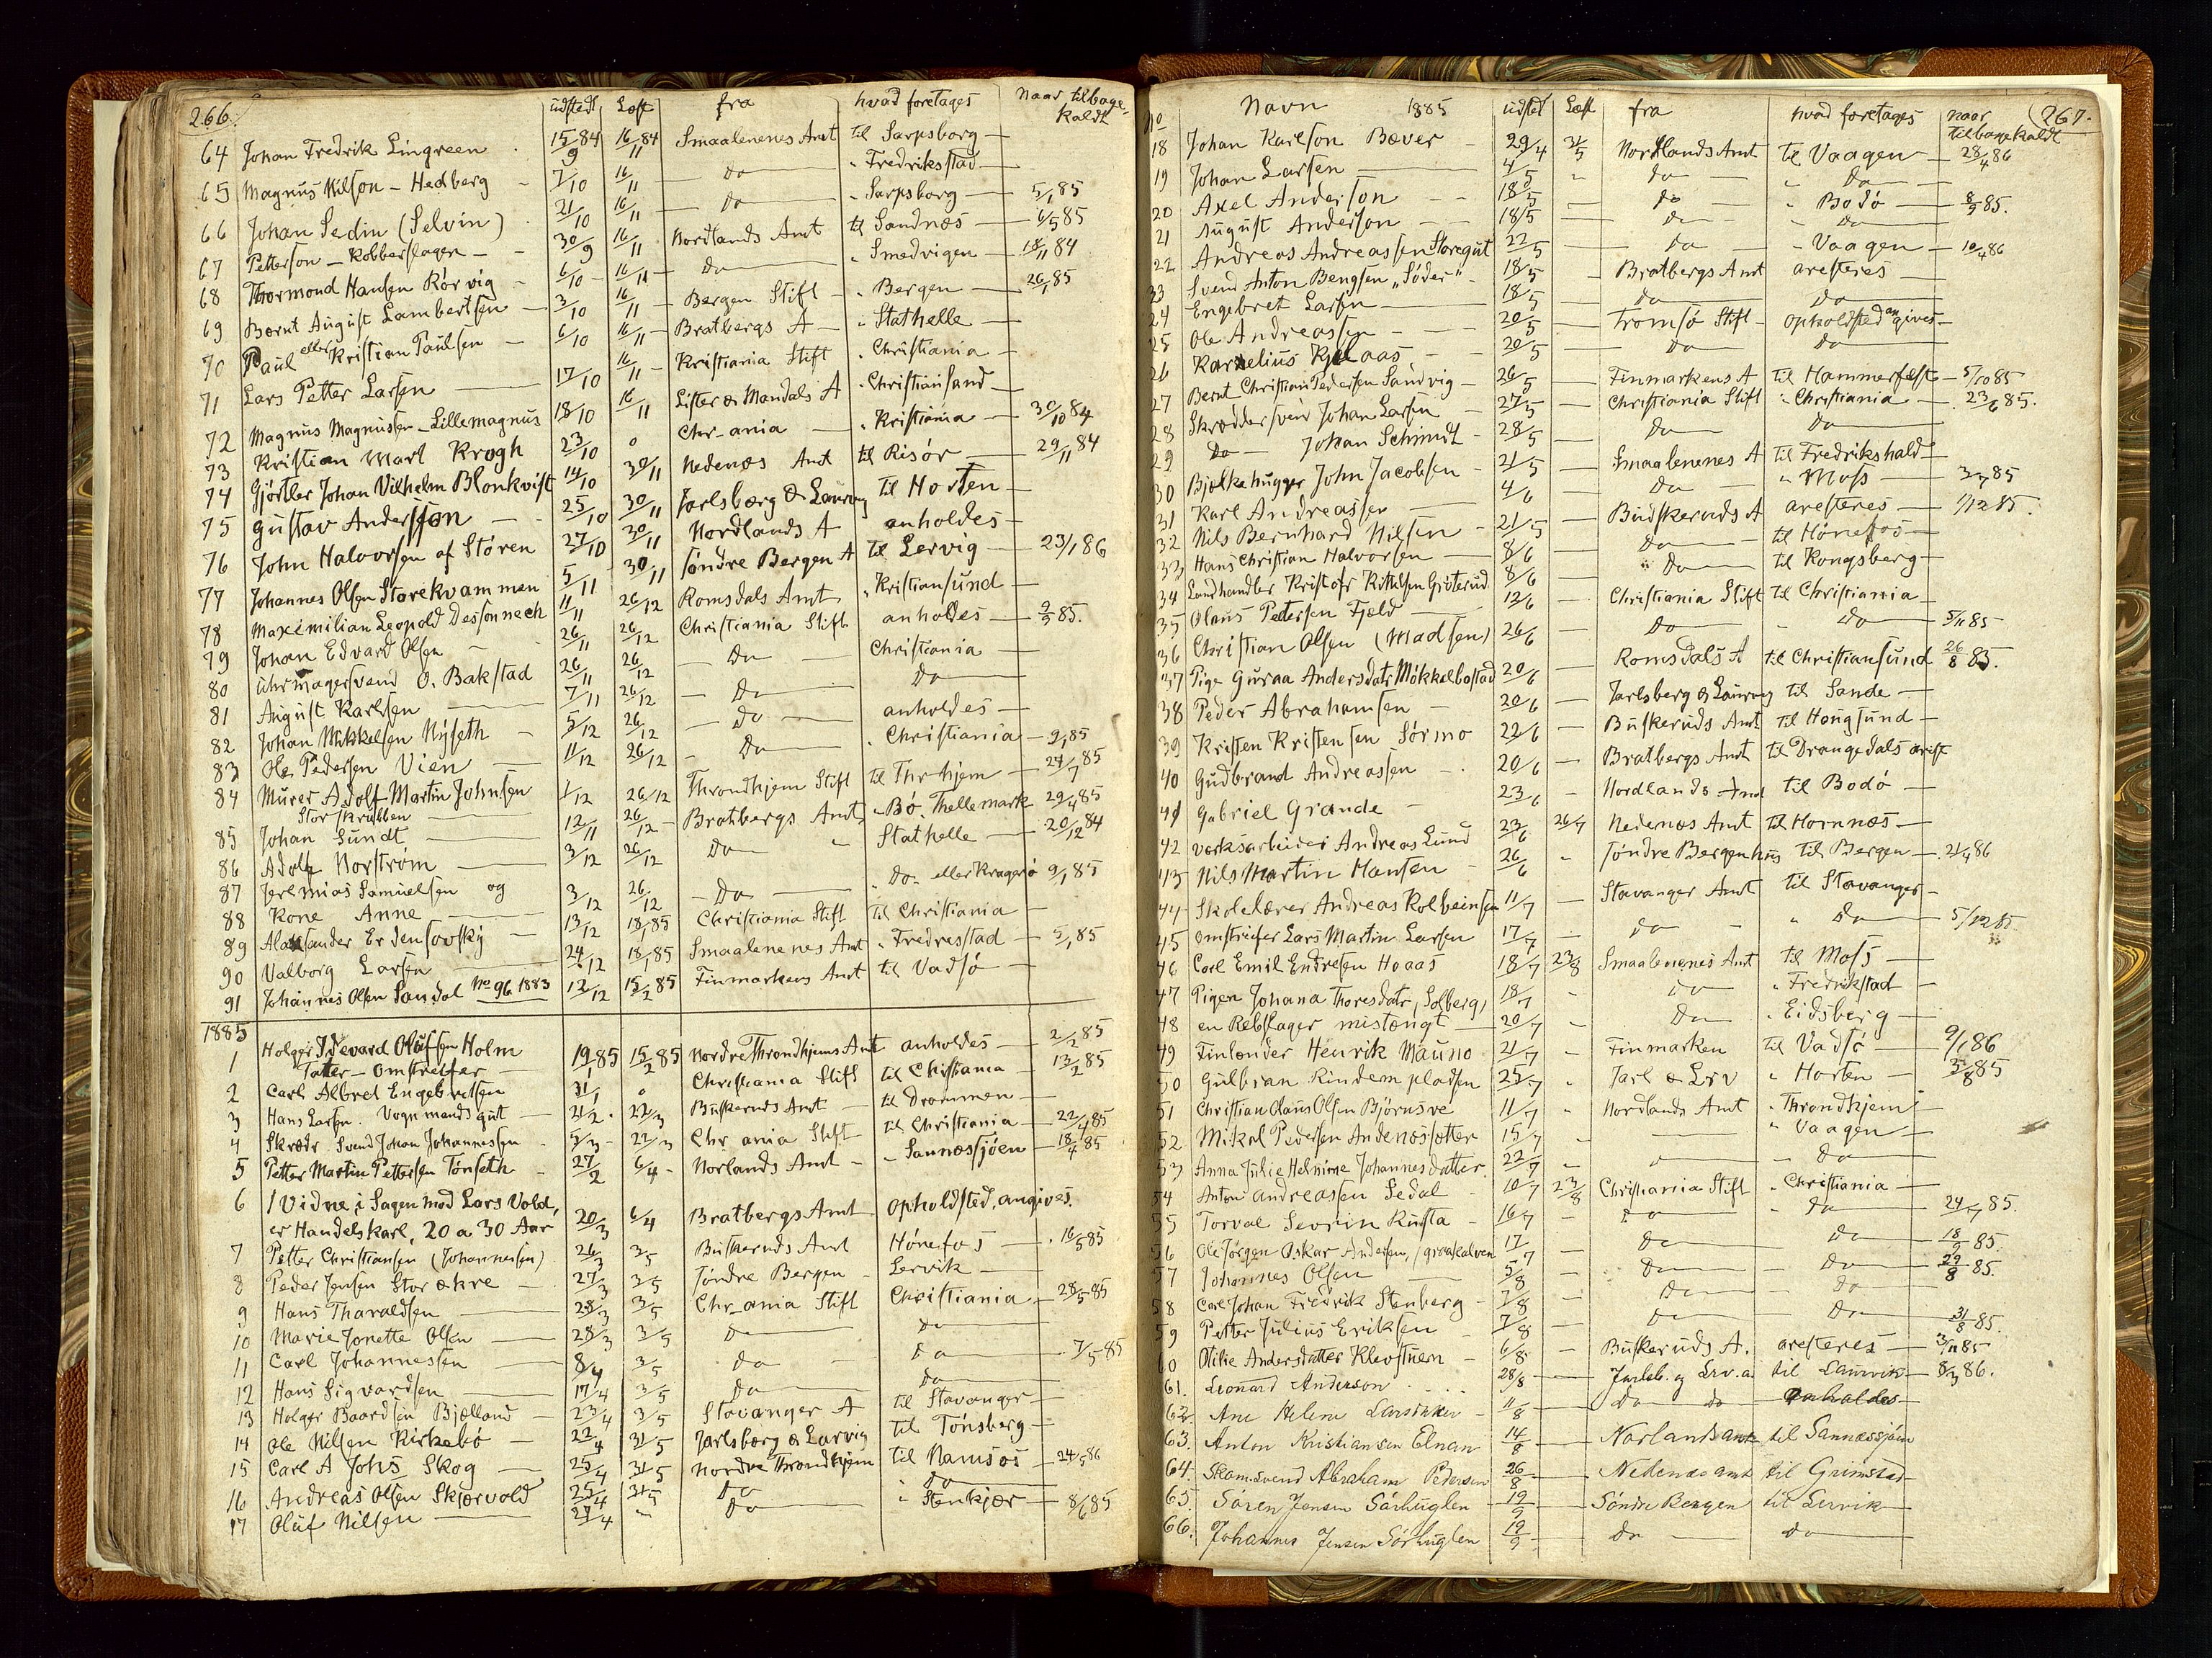 266. udstedt Læst fra hvad foretages Naar tilbage-
kaldt
64 Johan Fredrik Lingreen 15/9 84 16/11 84 Smaalenenes Amt til Sarpsborg
65 Magnus Nilson - Hedberg 7/10 16/11 Do " Fredriksstad
66 Johan Sedin (Selvin) 21/10 16/11 Do " Sarpsborg 5/1 85
67 Petterson - Kobberslager 30/9 16/11 Nordlands Amt til Sandnæs 6/5 85
68 Thormond Hansen Rörvig 6/10 16/11 Do " Smedvigen 18/11 84
69 Bernt August Lambertsen 3/10 16/11 Bergen Stift " Bergen 26/1 85
70 Paul eller Kristian Paulsen 6/10 16/11 Bratbergs A " Stathelle
71 Lars Petter Larsen 17/10 16/11 Kristiania Stift " Christiania
72 Magnus Magnussen - Lillemagnus 18/10 16/11 Lister & Mandals A " Christiansand
73 Kristian Marl Krogh 23/10 o Chr-ania " Kristiania 30/10 84
74 Gjörtler Johan Vilhelm Blonkvist 14/10 30/11 Nedenæs Amt til Risör 29/11 84
75 Gustav Andersson 25/10 30/11 Jarlsberg & Laurvig til Horten
76 John Halvorsen af Stören 27/10 30/11 Nordlands A anholdes
77 Johannes Olsen Storekvammen 5/11 30/11 Söndre Bergen A til Lervig 23/1 86
78 Maximilian Leopold Dessonnech 11/11 26/12 Romsdals Amt " Kristiansund
79 Johan Edvard Olsen 26/11 26/12 Christiania Stift anholdes 2/3 85.
80 Uhrmagersvend O. Bakstad 26/11 26/12 Do Christiania
81 August Karlsen 7/11 26/12 Do Do
82 Johan Mikkelsen Nyseth 5/12 26/12 Do anholdes
83 Ole Pedersen Vien 11/12 26/12 Do " Christiania 9/1 85
84 Murer Adolf Martin Johnsen 1/12 26/12 Throndhjem Stift til Thr-hjem 27/7 85
Storskrubben
85 Johan Sundt 12/11 26/12 Bratbergs Amt " Bö. Thellemark 29/4 85
86 Adolf Norström 3/12 26/12 Do " Stathelle 20/12 84
87 Jeremias Samuelsen og
88 Kone Anne 3/12 26/12 Do " Do. eller Kragerö 9/1 85
89 Alexsander Erdensovsky 13/12 18/1 85 Christiania Stift til Christiania
90 Valborg Larsen 24/12 18/1 85 Smaalenenes Amt " Fredresstad 5/1 85
91 Johannes Olsen Sandal No 96 1883 12/12 15/2 85 Finmarkens Amt til Vadsö
1885
1 Holger Idevard Olufsen Holm 19/1 85 15/2 85 Nordre Throndhjems Amt anholdes 2/2 85
Tater - Omstreifer
2 Carl Albret Engebretsen 31/1 o Christiania Stift til Christiania 13/2 85
3 Hans Larsen. Vognmandsgut 21/2 22/3 Buskeruds Amt til Drammen
4 Skrædr Svend Johan Johannessen 5/3 22/3 Chr ania Stift til Christiania 22/4 85
5 Petter Martin Pettersen Tönseth 27/2 6/4 Norlands Amt " Sannæssjöen 18/4 85
6 1 Vidne i Sagen mod Lars Vold,
er Handelskarl, 20 a 30 Aar 20/3 6/4 Bratbergs Amt Opholdsted. angives.
7 Petter Christiansen (Johannessen) 26/3 3/5 Buskeruds Amt Hönefos 16/5 85
8 Peder Jensen Storækre 27/3 3/5 Söndre Bergen Lervik
9 Hans Tharaldsen 28/3 3/5 Chr-ania Stift Christiania 28/5 85
10 Marie Jonette Olsen 28/3 3/5 Do Do
11 Carl Johannessen 8/4 3/5 Do Do 7/5 85
12 Hans Sigvardsen 17/4 3/5 Do Do
13 Holger Baardsen Bjelland 23/4 3/5 Stavanger A til Stavanger
14 Ole Nilsen Kirkebö 22/4 31/5 Jarlsberg & Larvig til Tönsberg
15 Carl A Johs Skog 25/4 31/5 Nordre Throndhjem til Namsos 24/5 86
16 Andreas Olsen Skjærvold 25/4 31/5 Do " Do
17 Oluf Nilsen 29/4 " Do " Stenkjær 8/6 85
No Navn 1885 udstedt Læst fra hvad foretages naar 267.
tilbagekaldt
18 Johan Karlson Bæver 29/4 31/5 Nordlands Amt til Vaagen 28/4 86
19 Johan Larsen 4/5 " Do " Do
20 Axel Anderson 18/5 Do " Bodö 8/9 85.
21 August Anderson 18/5 Do " Do
22 Andreas Andreassen Storegut 22/5 Do " Vaagen 10/4 86
23 Svend Anton Bengsen "Söder" 18/5 Bratbergs Amt aresteres
24 Engebret Larsen 18/5 Do Do
25 Ole Andreassen 20/5 Tromsö Stift Opholdsted angives
26 Karnelius Kjelaas 20/5 Do Do
27 Bernt Christian Pedersen Sandvig 26/5 Finmarkens A til Hammerfest 5/10 85
28 Skræddersvend Johan Larsen 27/5 Christiania Stift " Christiania 23/6 85.
29 Do Johan Schimdt 28/5 Do Do
30 Bjelkehugger John Jacobsen 21/5 Smaalenenes A til Fredrikshald
31 Karl Andreassen 4/6 Do " Moss 3/7 85
32 Nils Bernhard Nilsen 21/5 Budskeruds A aresteres 1/12 85.
33 Hans Christian Halvorsen 8/6 Do til Hönefos
34 Landhandler Kristofr Kittilsen Gröterud 8/6 " Do til Kongsberg
35 Olaus Petersen Fjeld 12/6 Christiania Stift til Christiania
36 Christian Olsen (Madsen) 26/6 Do " Do 5/11 85
37 Pige Guraa Andersdatr Mökkelbostad 20/6 Romsdals A til Christiansund 26/8 85.
38 Peder Abrahamsen 20/6 Jarlsberg & Laurvig til Sande
39 Kristen Kristensen Sörmo 22/6 Buskeruds Amt til Hougsund
40 Gudbrand Andreassen 20/6 Bratbergs Amt til Drangedals arest
41 Gabriel Grande 23/6 Nordlands Amt til Bodö
42 Værksarbeider Andreas Lund 23/6 26/7 Nedenæs Amt til Hornnæs
43 Nils Martin Hansen 26/6 " Söndre Bergenhus til Bergen 21/4 86
44 Skolelærer Andreas Kolbeinsen 11/7 Stavanger Amt til Stavanger
45 Omstreifer Lars Martin Larsen 17/7 Do " Do 5/12 85
46 Carl Emil Endresen Hoaas 18/7 23/8 Smaalenenes Amt til Moss
47 Pigen Johana Thoresdatr (Solberg) 18/7 " Do " Fredrikstad
48 en Rebslager mistængt 20/7 Do " Eidsberg
49 Finlænder Henrik Mauno 21/7 " Finmarken til Vadsö 9/1 86
50 Gulbran Rindempladsen 25/7 " Jarl & Lrv " Horten 5/8 85
51 Christian Olaus Olsen Björnsve 11/7 " Nordlands Amt " Throndhjem
52 Mikal Pedersen Andenæssætter 15/7 " Vaagen
53 Anna Julie Helmine Johannesdatter 22/7 Do
54 Anton Andreassen Sedal 10/7 23/8 Christiania Stift " Christiania
55 Torval Sevrin Rusta 16/7 Do " Do 24/7 85.
56 Ole Jörgen Oskar Andersen, graakalven 17/7 Do Do 18/9 85.
57 Johannes Olsen 5/8 Do Do 29/8 85.
58 Carl Johan Fredrik Stenberg 7/8 Do Do
59 Petter Julius Eriksen 7/8 Do Do 31/8 85.
60 Otilie Andersdatter Klevstuen 6/8 Buskeruds A. aresteres 3/11 85
61. Leonard Anderson 28/8 Jarlsb. og Lrv. a. til Laurvik 8/3 86.
62. Ane Helene 11/8 Do Do anholdes
63. Anton Kristiansen Elnan 14/8 Norlands amt til Sannæssjöen
64. Skom.svend Abraham Pedersen 26/8 Nedenæs amt til Grimstad
65. Sören Jensen Sörhuglen 19/9 Söndre Bergen til Lervik
66. Johannes Jensen Sörhuglen 19/9 Do Do